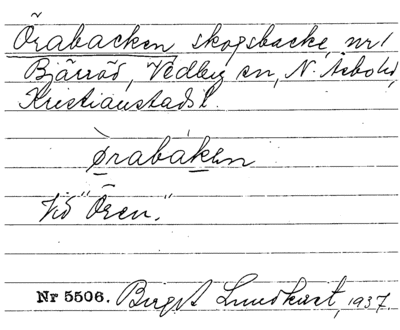 Örabacken skogsbacke, nr 1
Bjärröd, Vedby sn, N. Åsbohd,
Kristianstads l.
ørabáken
Vid "Ören."
Nr 5506. Birgit Lundkvist, 1937